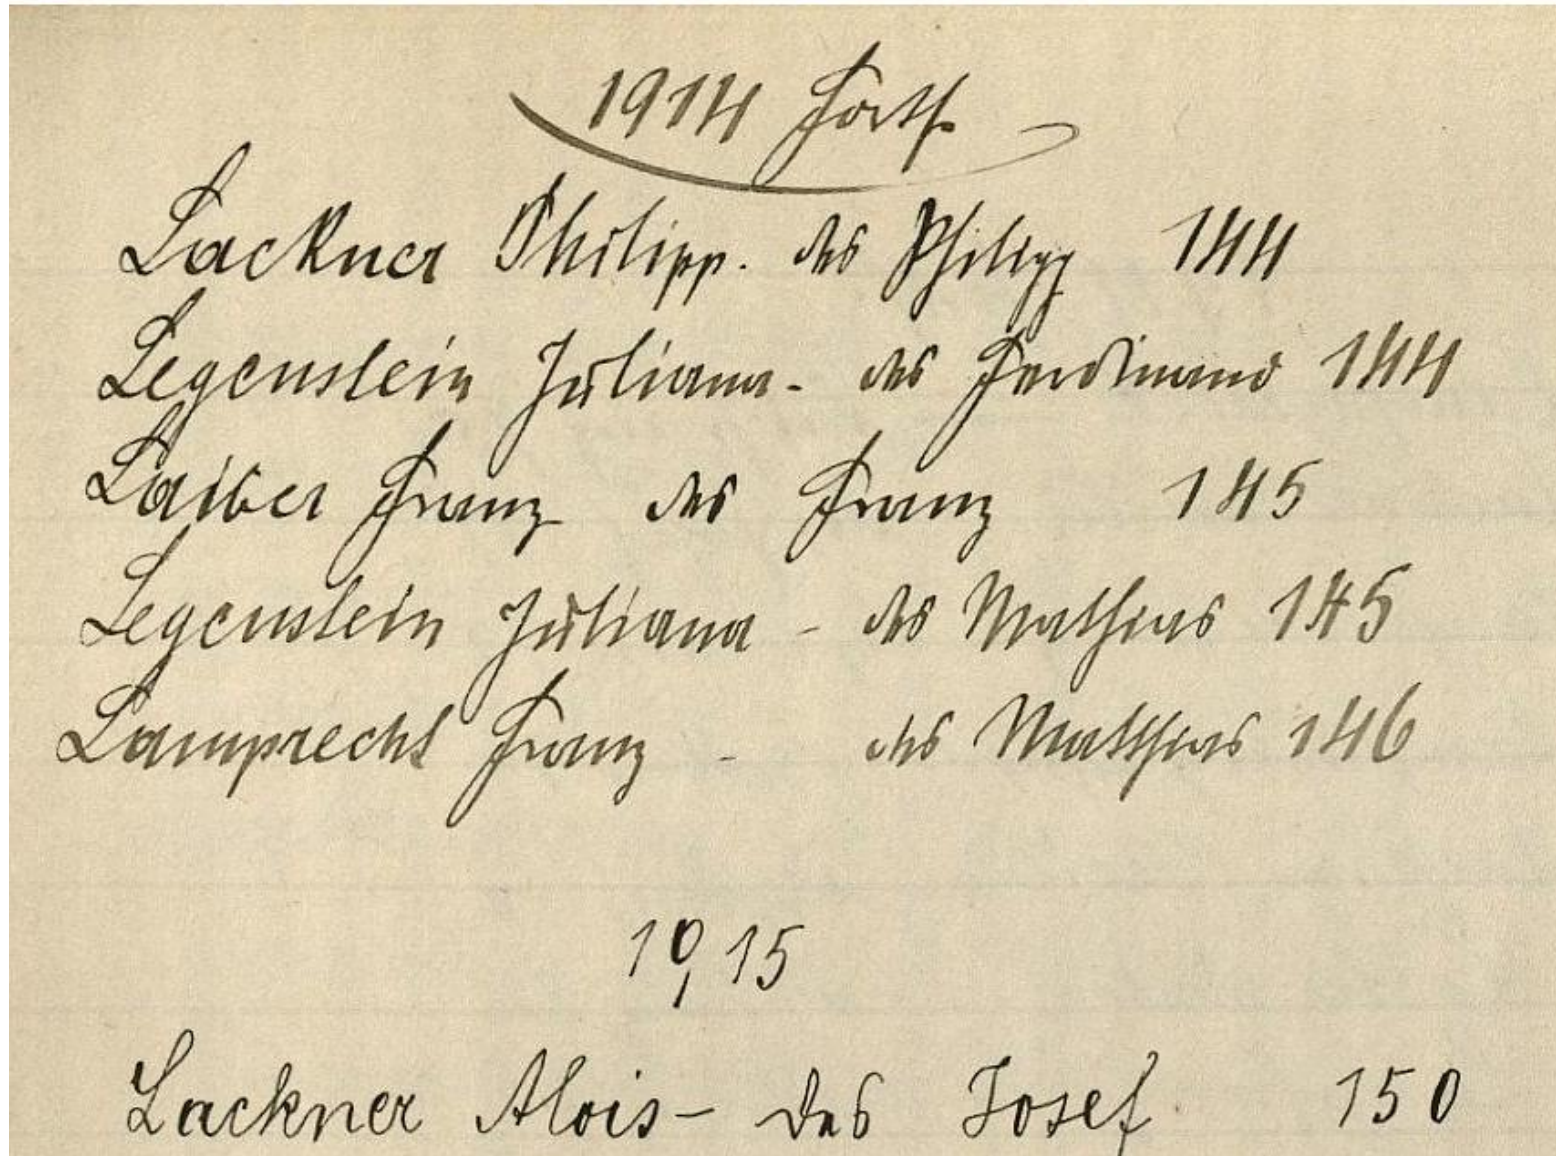 1914 Forts.
Lackner Philipp. des Philipp 144
Legenstein Juliana - des Ferdinand 144
Laiber Franz des Franz 145
Legenstein Juliana - des Mathias 145
Lamprecht Franz - des Matthias 146
1915
Lackner Alois - des Josef 150